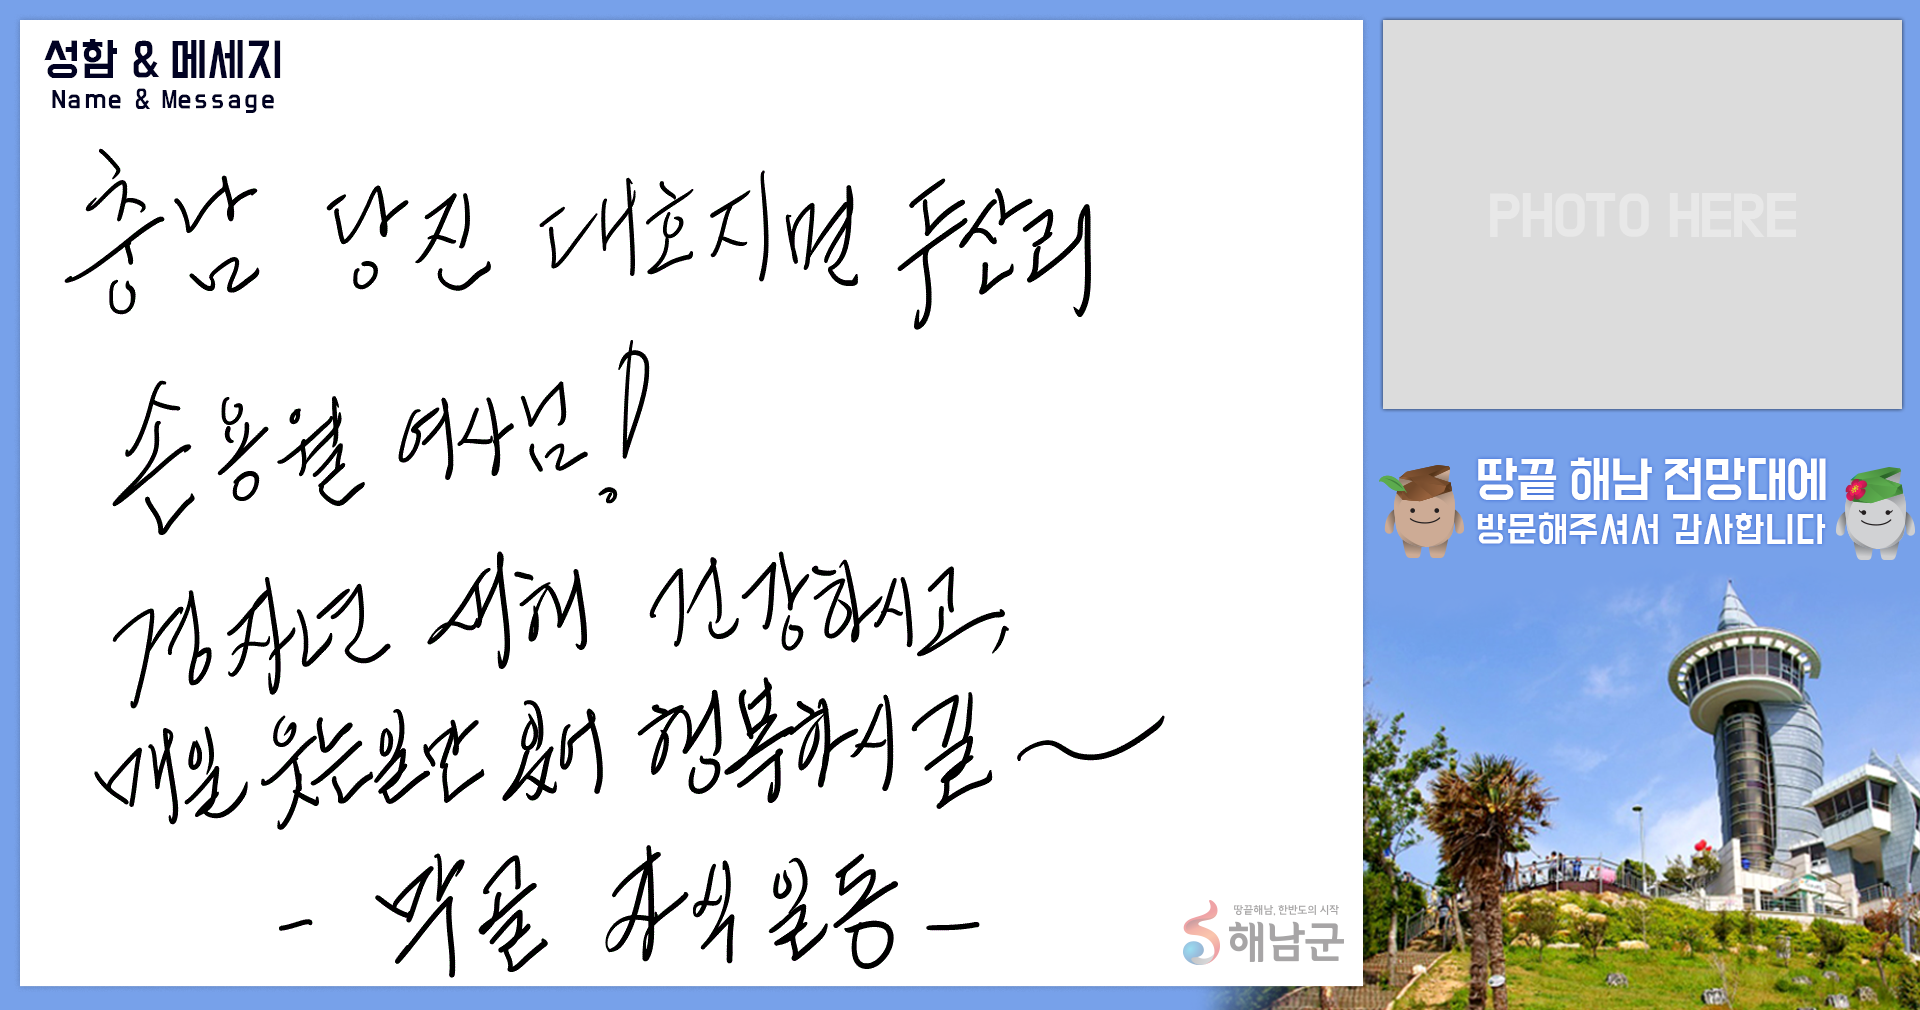 성함 & 메세지
Name & Message
충남 당진 대호지면 두산리
손용월 여사님!
경자년 새해 건강하시고,
매일 웃는일만 있어 행복하시길~
- 막골 자식 일동 -
PHOTO HERE
땅끝 해남 전망대에
방문해주셔서 감사합니다
땅끝해남, 한반도의 시작
해남군